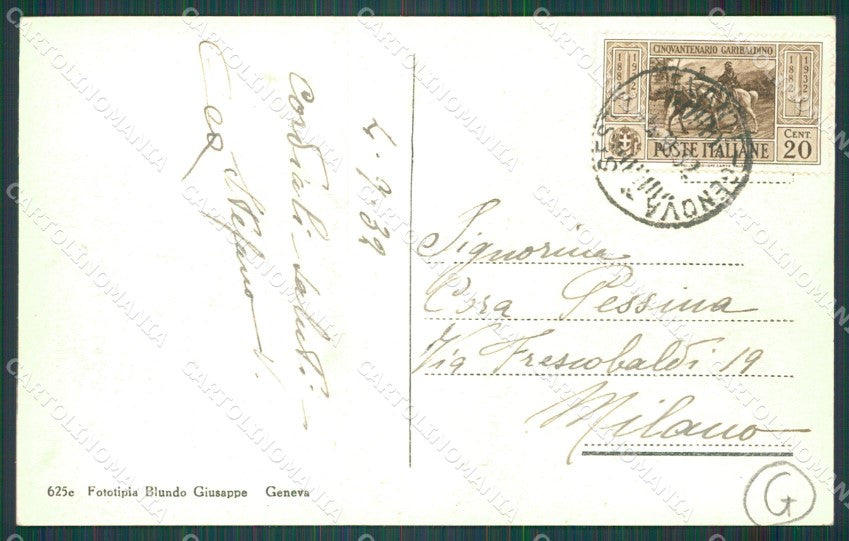 Cordiali saluti.
4-9-32
CINQVANTENARIO GARIBALDINO
1882
1932
1882
1932
CENT.
POSTE ITALIANE 20
GENOVA
Signorina
Cora Pessina
Via Frescobaldi 19
Milano
625e Fototipia Blundo Giusappe Geneva
G
CARTOLINOMANIA